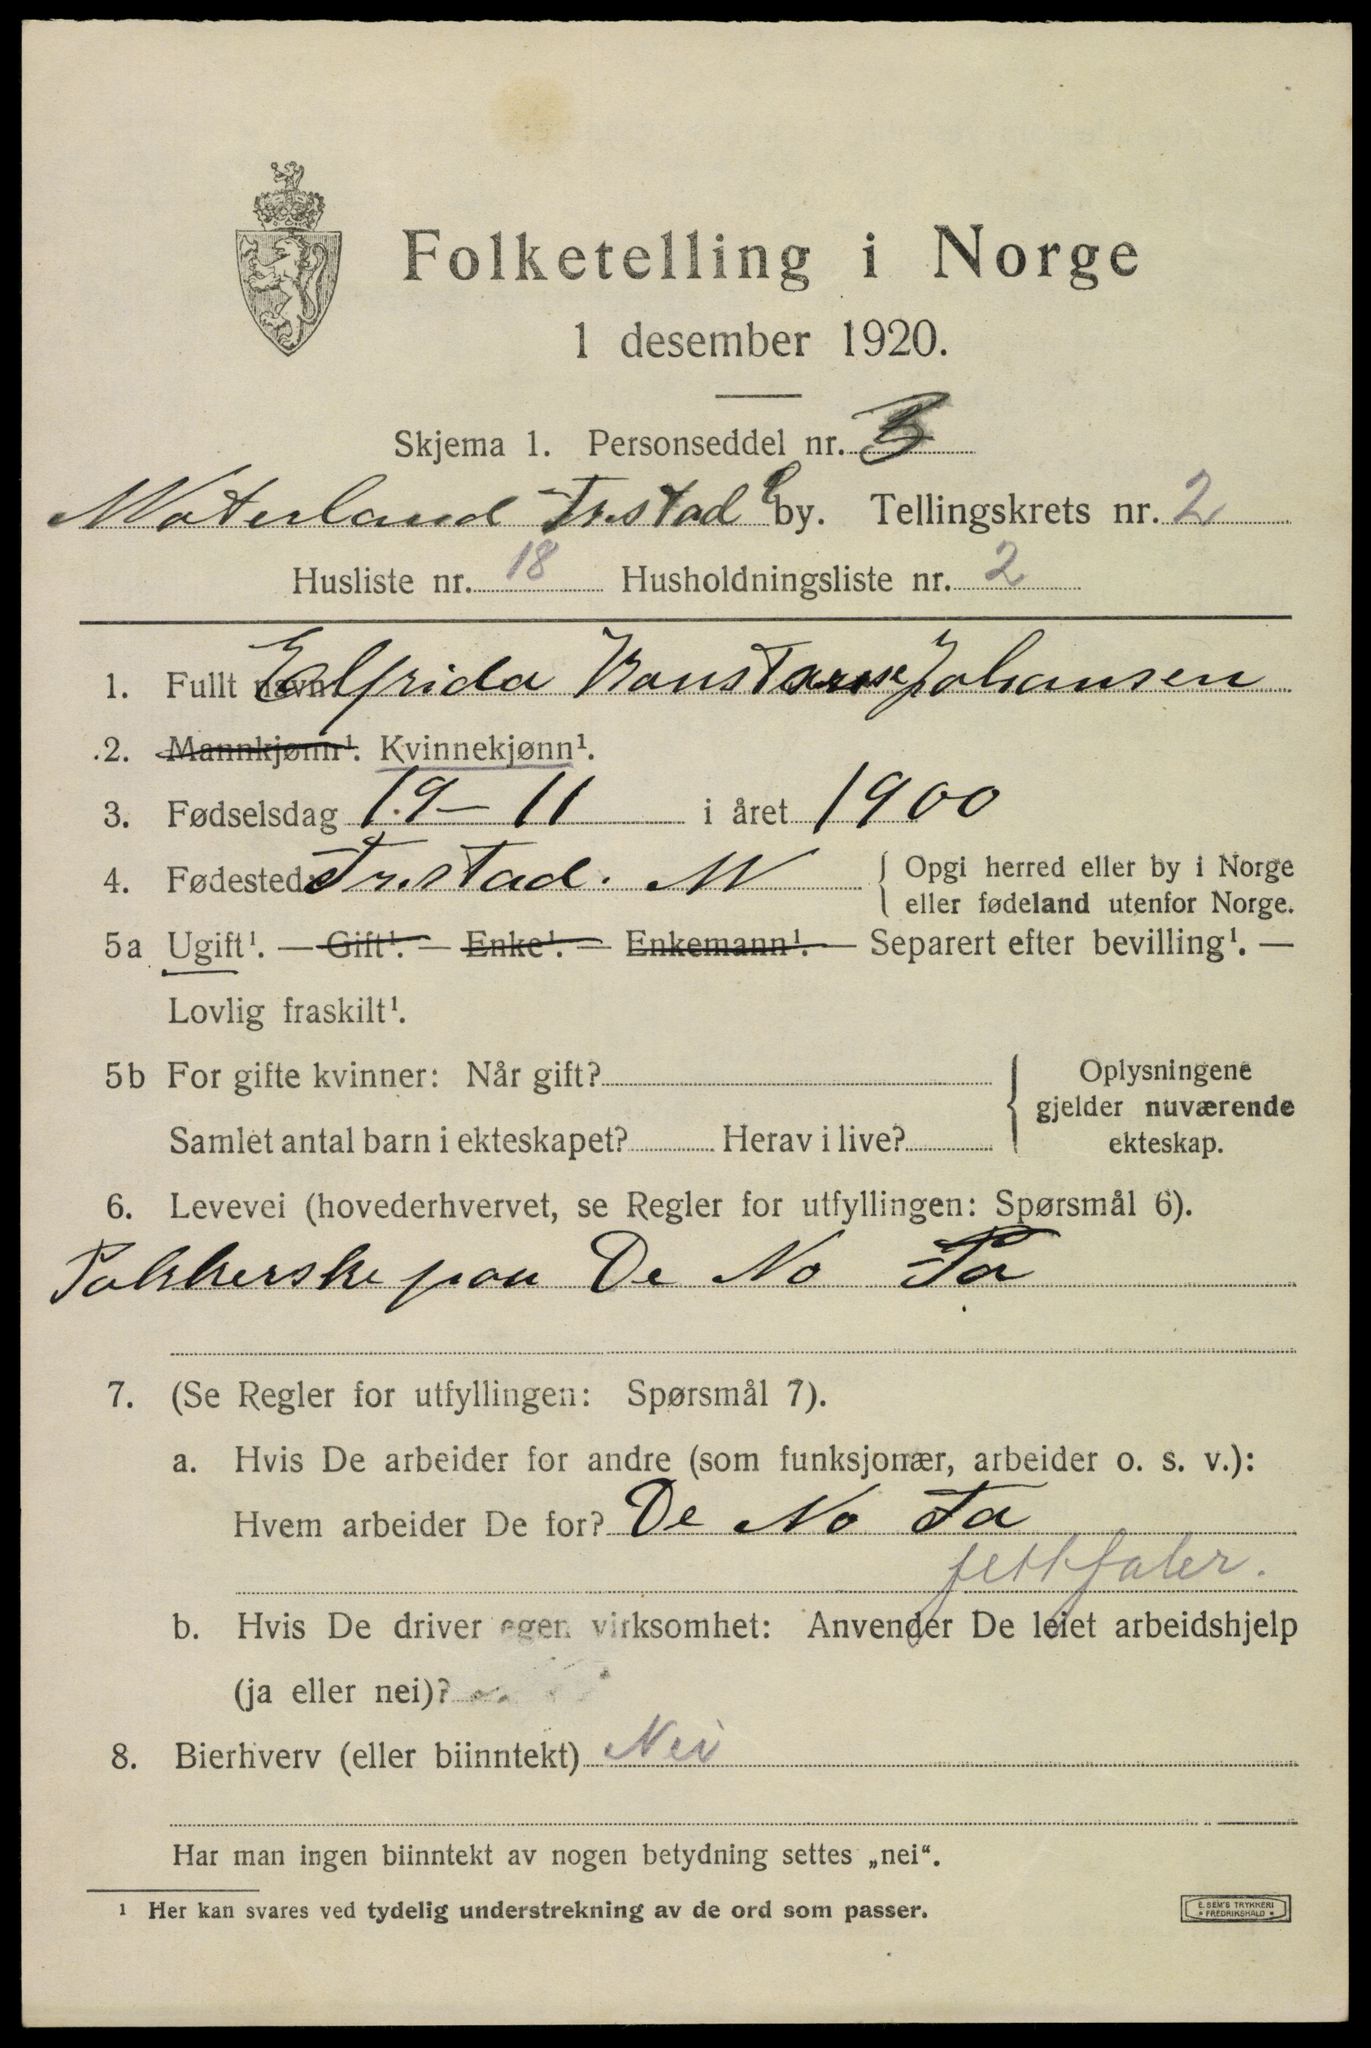 Folketelling i Norge
1 desember 1920.
Skjema 1. Personseddel nr. 3
Waterland Fr.stad by. Tellingskrets nr. 2
Husliste nr. 18 Husholdningsliste nr. 2
1. Fullt navn Elfrida Johansen
2. Mannkjønn¹. Kvinnekjønn¹.
3. Fødselsdag 19-11 i året 1900
4. Fødested Fr.stad. { Opgi herred eller by i Norge
eller fødeland utenfor Norge.
5a Ugift¹. — Gift¹. — Enke¹. — Enkemann¹. — Separert efter bevilling¹. —
Lovlig fraskilt¹.
5b For gifte kvinner: Når gift? { Oplysningene
gjelder nuværende
Samlet antal barn i ekteskapet? Herav i live? ekteskap.
6. Levevei (hovederhvervet, se Regler for utfyllingen: Spørsmål 6).
Pakkerske paa De No Fa
7. (Se Regler for utfyllingen: Spørsmål 7).
a. Hvis De arbeider for andre (som funksjonær, arbeider o. s. v.):
Hvem arbeider De for? De No Fa
b. Hvis De driver egen virksomhet: Anvender De leiet arbeidshjelp
(ja eller nei)?
8. Bierhverv (eller biinntekt) Nei
Har man ingen biinntekt av nogen betydning settes „nei“.
¹ Her kan svares ved tydelig understrekning av de ord som passer.
E. SEM'S TRYKKERI
* FREDRIKSHALD *